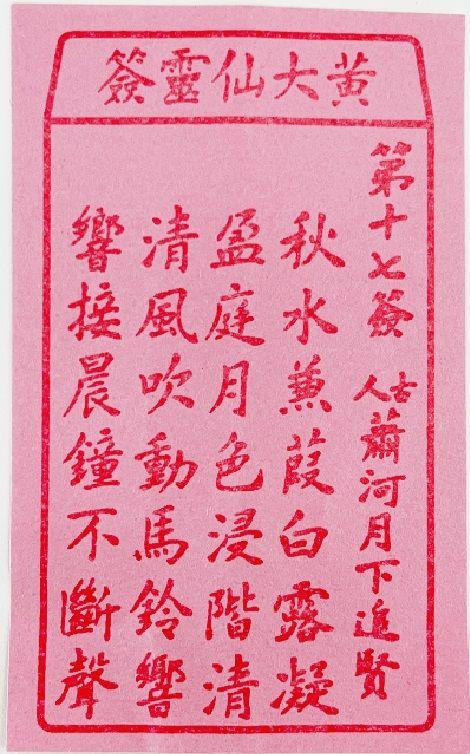 黃大仙靈簽
第十七簽 古人蕭河月下追賢
秋水蒹葭白露凝
盈庭月色浸階清
清風吹動馬鈴響
響接晨鐘不斷聲